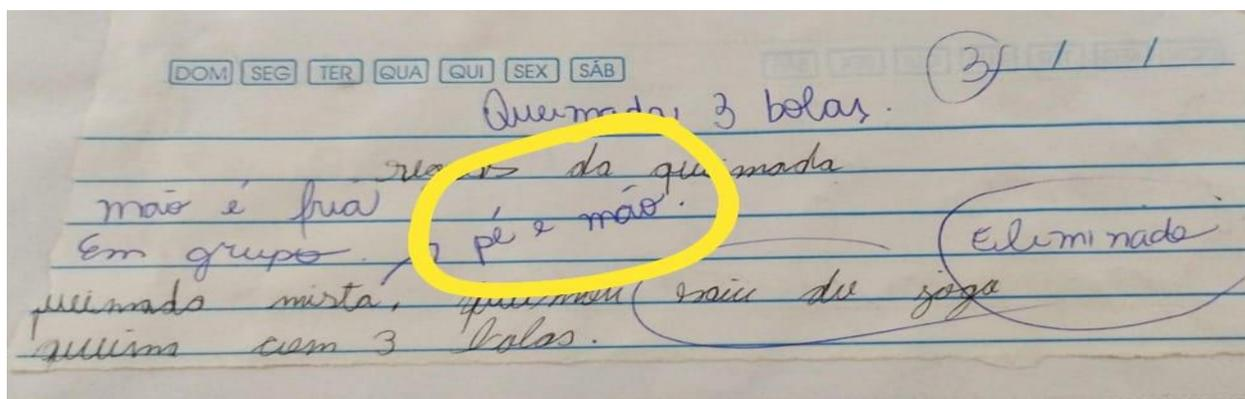 DOM SEG TER QUA QUI SEX SÁB
3 / /
Queimada, 3 bolas.
regras da queimada
mão é fria
pé e mão.
Em grupo.
Eliminado
queimada mista, queimou saiu do jogo
queima com 3 bolas.